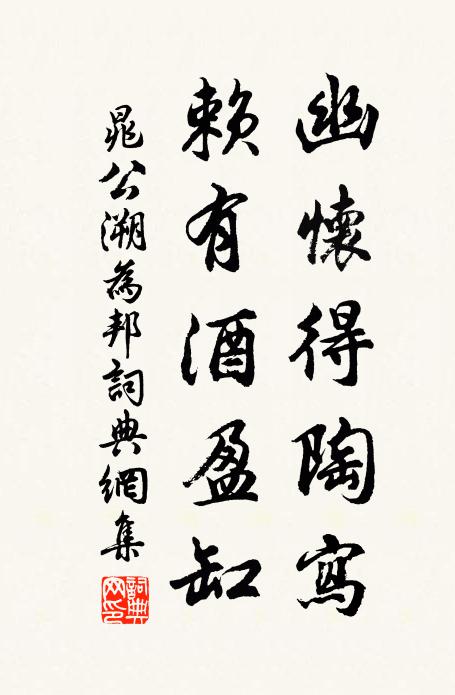 幽懷得陶寫
賴有酒盈缸
晁公溯為邦詞典網集
詞典網印